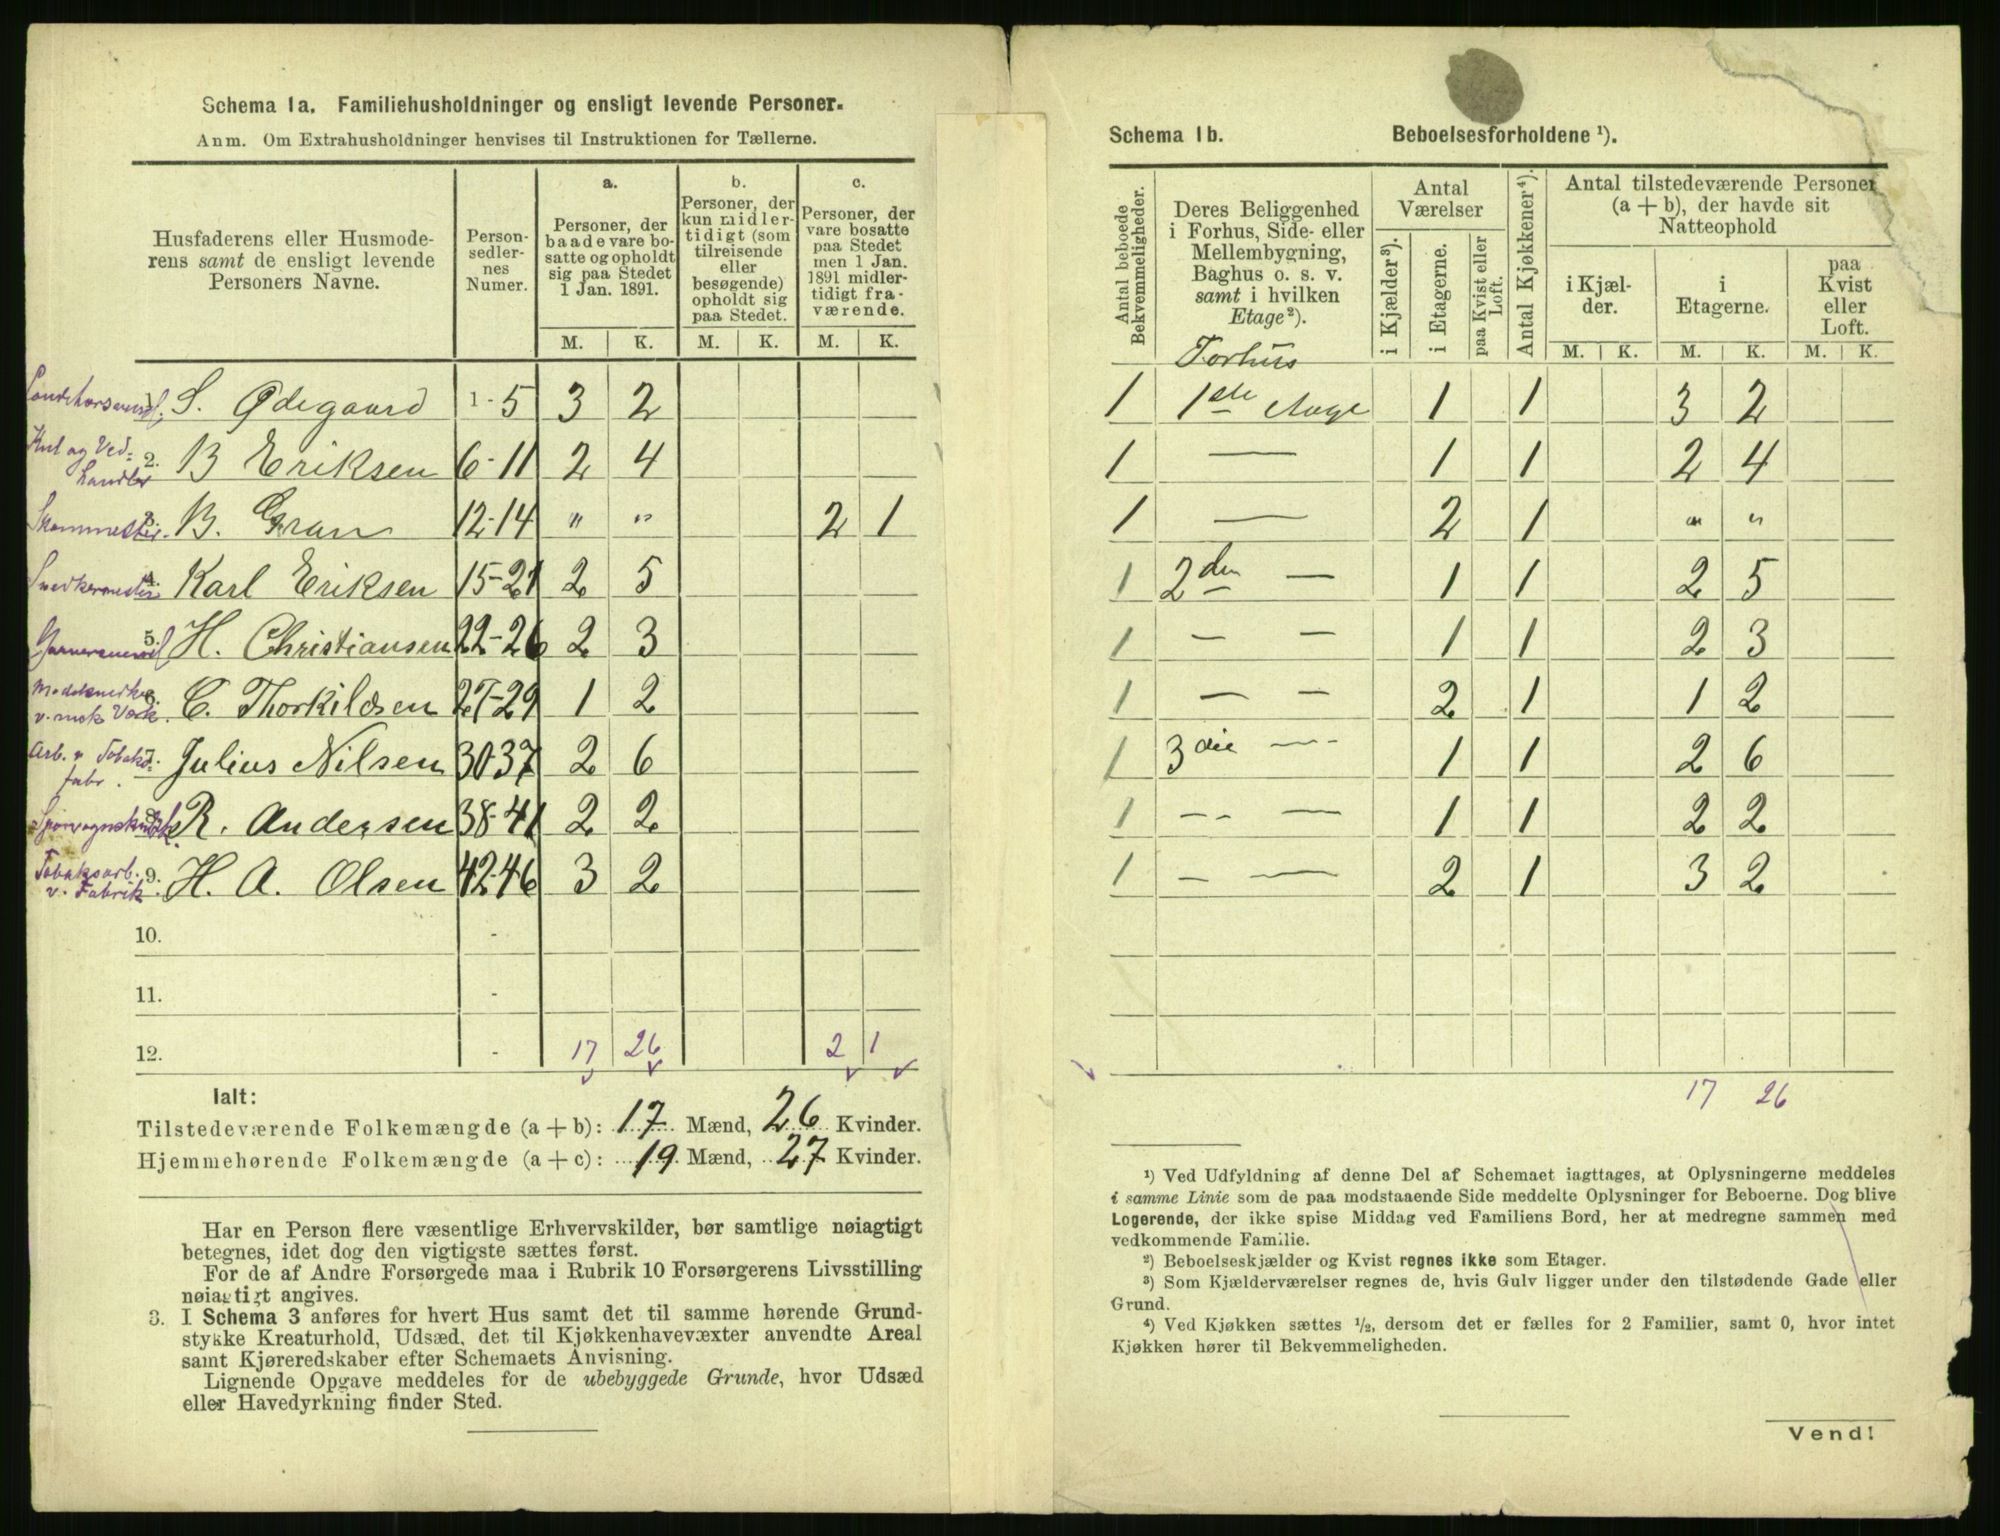 Schema 1a. Familiehusholdninger og ensligt levende Personer.
Anm. Om Extrahusholdninger henvises til Instruktionen for Tællerne.
Husfaderens eller Husmode-
rens samt de ensligt levende
Personers Navne.
Person-
sedler-
nes
Numer.
a.
Personer, der
baade vare bo-
satte og opholdt
sig paa Stedet
1 Jan. 1891.
b.
Personer, der
kun midler-
tidigt (som
tilreisende
eller
besøgende)
opholdt sig
paa Stedet.
c.
Personer, der
vare bosatte
paa Stedet
men 1 Jan.
1891 midler-
tidigt fra-
værende.
M. K. M. K. M. K.
S. Ødegaard 1-5 3 2
Kul og Ved-
handler
2. B Eriksen 6-11 2 4
3. B. Gran 12-14 " " 2 1
Snedkermester 4. Karl Eriksen 15-21 2 5
5. H. Christiansen 22-26 2 3
6. C. Thorkildsen 27-29 1 2
v. mek Værk.
Arb. v Tobaks-
fabr.
7. Julius Nilsen 30-37 2 6
8. R. Andersen 38-41 2 2
Tobaksarb.
v. Fabrik
9. H. A. Olsen 42-46 3 2
10. -
11. -
12. - 17 26 2 1
Ialt:
Tilstedeværende Folkemængde (a + b): 17 Mænd, 26 Kvinder.
Hjemmehørende Folkemængde (a + c): 19 Mænd, 27 Kvinder.
Har en Person flere væsentlige Erhvervskilder, bør samtlige nøiagtigt
betegnes, idet dog den vigtigste sættes først.
For de af Andre Forsørgede maa i Rubrik 10 Forsørgerens Livsstilling
nøiagtigt angives.
3. I Schema 3 anføres for hvert Hus samt det til samme hørende Grund-
stykke Kreaturhold, Udsæd, det til Kjøkkenhavevæxter anvendte Areal
samt Kjøreredskaber efter Schemaets Anvisning.
Lignende Opgave meddeles for de ubebyggede Grunde, hvor Udsæd
eller Havedyrkning finder Sted.
Schema 1b. Beboelsesforholdene ¹).
Antal beboede
Bekvemmeligheder.
Deres Beliggenhed
i Forhus, Side- eller
Mellembygning,
Baghus o. s. v.
samt i hvilken
Etage²).
Antal
Værelser
i Kjælder³).
i Etagerne.
paa Kvist eller
Loft.
Antal Kjøkkener⁴).
Antal tilstedeværende Personer
(a + b), der havde sit
Natteophold
i Kjæl-
der.
i
Etagerne.
paa
Kvist
eller
Loft.
M. K. M. K. M. K.
Forhus
1 1ste 1 1 3 2
1 — 1 1 2 4
1 — 2 1 " "
1 2den — 1 1 2 5
1 — — 1 1 2 3
1 — — 2 1 1 2
1 3die — 1 1 2 6
1 — — 1 1 2 2
1 — — 2 1 3 2
17 26
¹) Ved Udfyldning af denne Del af Schemaet iagttages, at Oplysningerne meddeles
i samme Linie som de paa modstaaende Side meddelte Oplysninger for Beboerne. Dog blive
Logerende, der ikke spise Middag ved Familiens Bord, her at medregne sammen med
vedkommende Familie.
²) Beboelseskjælder og Kvist regnes ikke som Etager.
³) Som Kjælderværelser regnes de, hvis Gulv ligger under den tilstødende Gade eller
Grund.
⁴) Ved Kjøkken sættes ½, dersom det er fælles for 2 Familier, samt 0, hvor intet
Kjøkken hører til Bekvemmeligheden.
Vend!